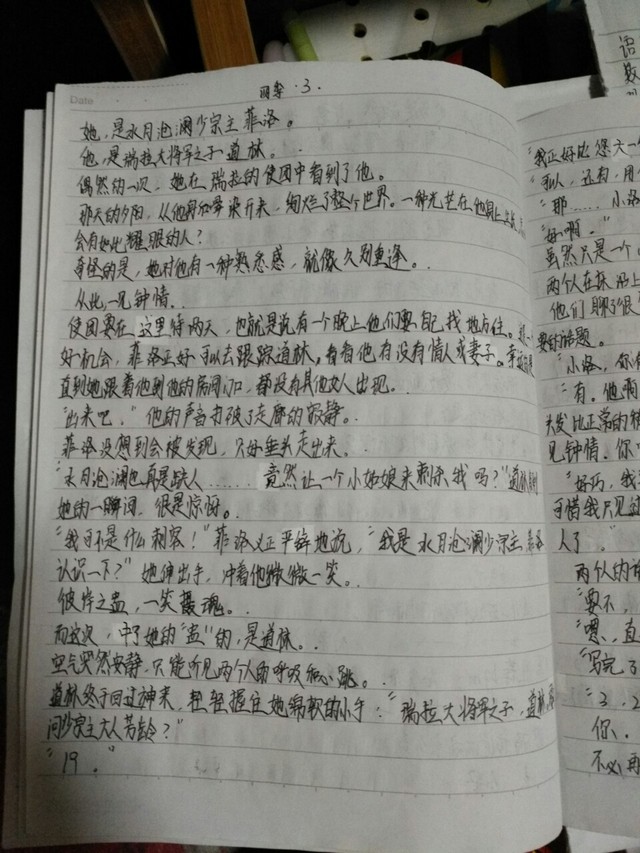 Date
回零·3.
她,是水月沧澜少宗主菲洛。
他,是瑞拉大将军之子道林。
偶然的一次,她在瑞拉的使团中看到了他。
那天的夕阳,从他的染开来,绚烂了整个世界。一种光芒在他身上
会有如此耀眼的人?
奇怪的是,她对他有一种熟悉感,就像久别重逢。
从此一见钟情。
使团要在这里待两天,也就是说有一个晚上他们要自己找地方住。
好机会,菲洛正好可以去跟踪道林,看看他有没有情人或妻子。
直到她跟着他到他的房间门口,都没有其他女人出现。
"出来吧。"他的声音打破了走廊的寂静。
菲洛没想到会被发现,只好垂头走出来。
"水月沧澜也真是缺人……竟然让一个小姑娘来刺杀我吗?"道林
她的一瞬间,很是惊讶。
"我可不是什么刺客!"菲洛义正严辞地说,"我是水月沧澜少宗主菲洛
认识一下?"她伸出手,冲着他微微一笑。
彼岸之蛊,一笑摄魂。
而这次,中了她的"蛊"的,是道林。
空气突然安静,只能听见两个人的呼吸和心跳。
道林终于回过神来,轻轻握住她绵软的小手:"瑞拉大将军之子,道林,
问少宗主大人芳龄?"
"19。"
语
数
"我正好比您大一
和人,还有,用
"那……小洛
"好啊。"
虽然只是一个
两个人在床上
他们聊了很
要好话题。
"小洛,你有
"有。他啊
头发比正常的
见钟情。你
"好巧,我
可惜我只见过
人了。"
两人的
"要不,
"嗯,直
"写完了
"3,2
你.
不必再